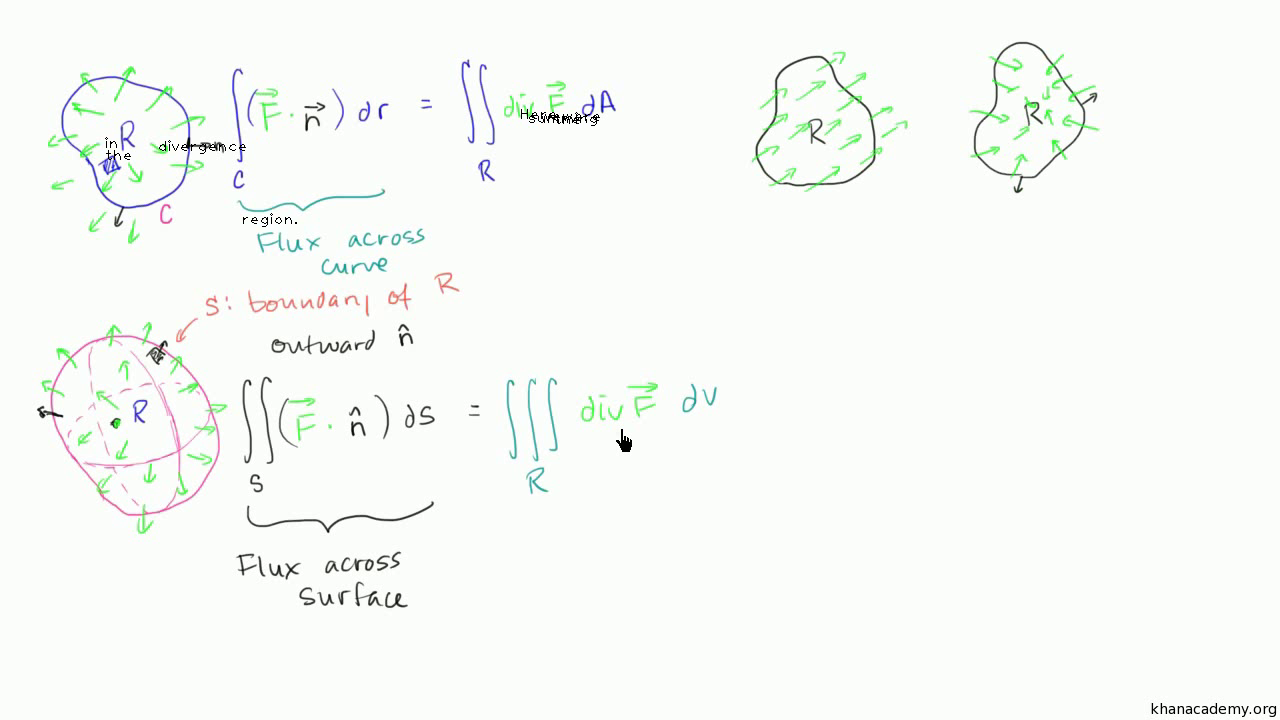 R
in
the
divergence
C
∫_C (F⃗ · n⃗) dr = ∬_R div F⃗ dA
region.
Flux across
curve
R
R
S: boundary of R
outward n̂
R
∬_S (F⃗ · n̂) ds = ∭_R div F⃗ dV
Flux across
surface
khanacademy.org